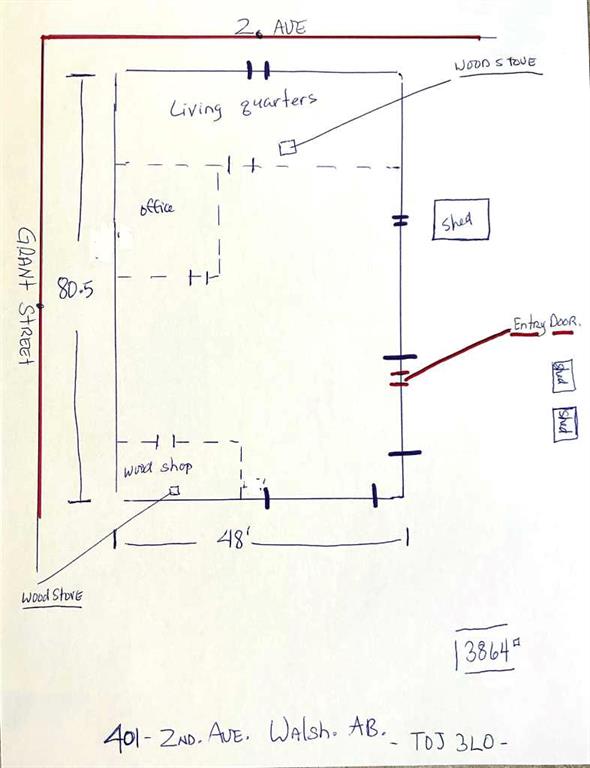 2. AVE
WOOD STOVE
Living quarters
office
Shed
GRANT STREET
80.5
Entry Door.
Shed
Shed
wood shop
48'
Wood Stove
3864
401 - 2ND. AVE. WALSH. AB. - T0J 3L0 -